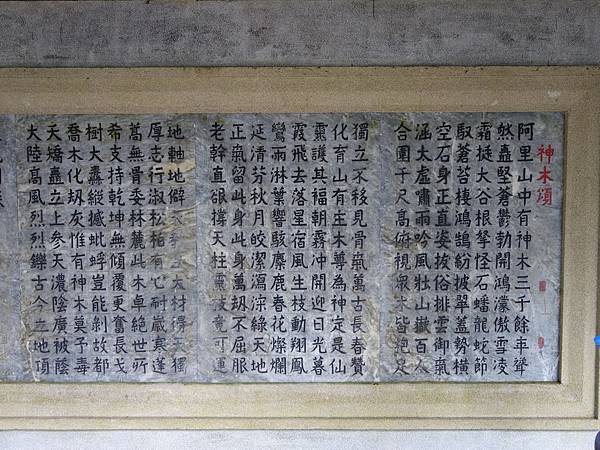 神木頌
阿里山中有神木三千餘年聳
然矗堅蒼鬱勃開鴻濛傲雪凌
霜挺大谷根拏怪石蟠龍蛇節
馭蒼苔棲鴻鵠紛披翠蓋勢橫
空身正直姿拔俗排雲御氣
涵太虛嘯雨吟風壯山嶽百人
合圍千尺高俯視眾木皆抱足
獨立不移見骨氣萬古長春贊
化育山有木尊為神定是仙
靈護其福朝霧冲開迎日光暮
霞飛去落星宿風生枝動翔鳳
鸞雨淋葉響駭麋鹿春花燦爛
延清芬秋月皎潔瀉淙綠天地
正氣留此身此身萬劫不屈服
老幹直欲撐天柱竟可運
地軸地僻大材得天獨
厚志行淑松柏有心耐歲寒蓬
蒿無骨委林麓此木卓絕世所
希支持乾坤無傾覆更奮長戈
樹大纛縱撼蚍蜉豈能剝故都
喬木化劫灰惟有神木莫予毒
天矯矗立上參天濃陰廣被蔭
大陸高風烈烈鑠古今立地頂